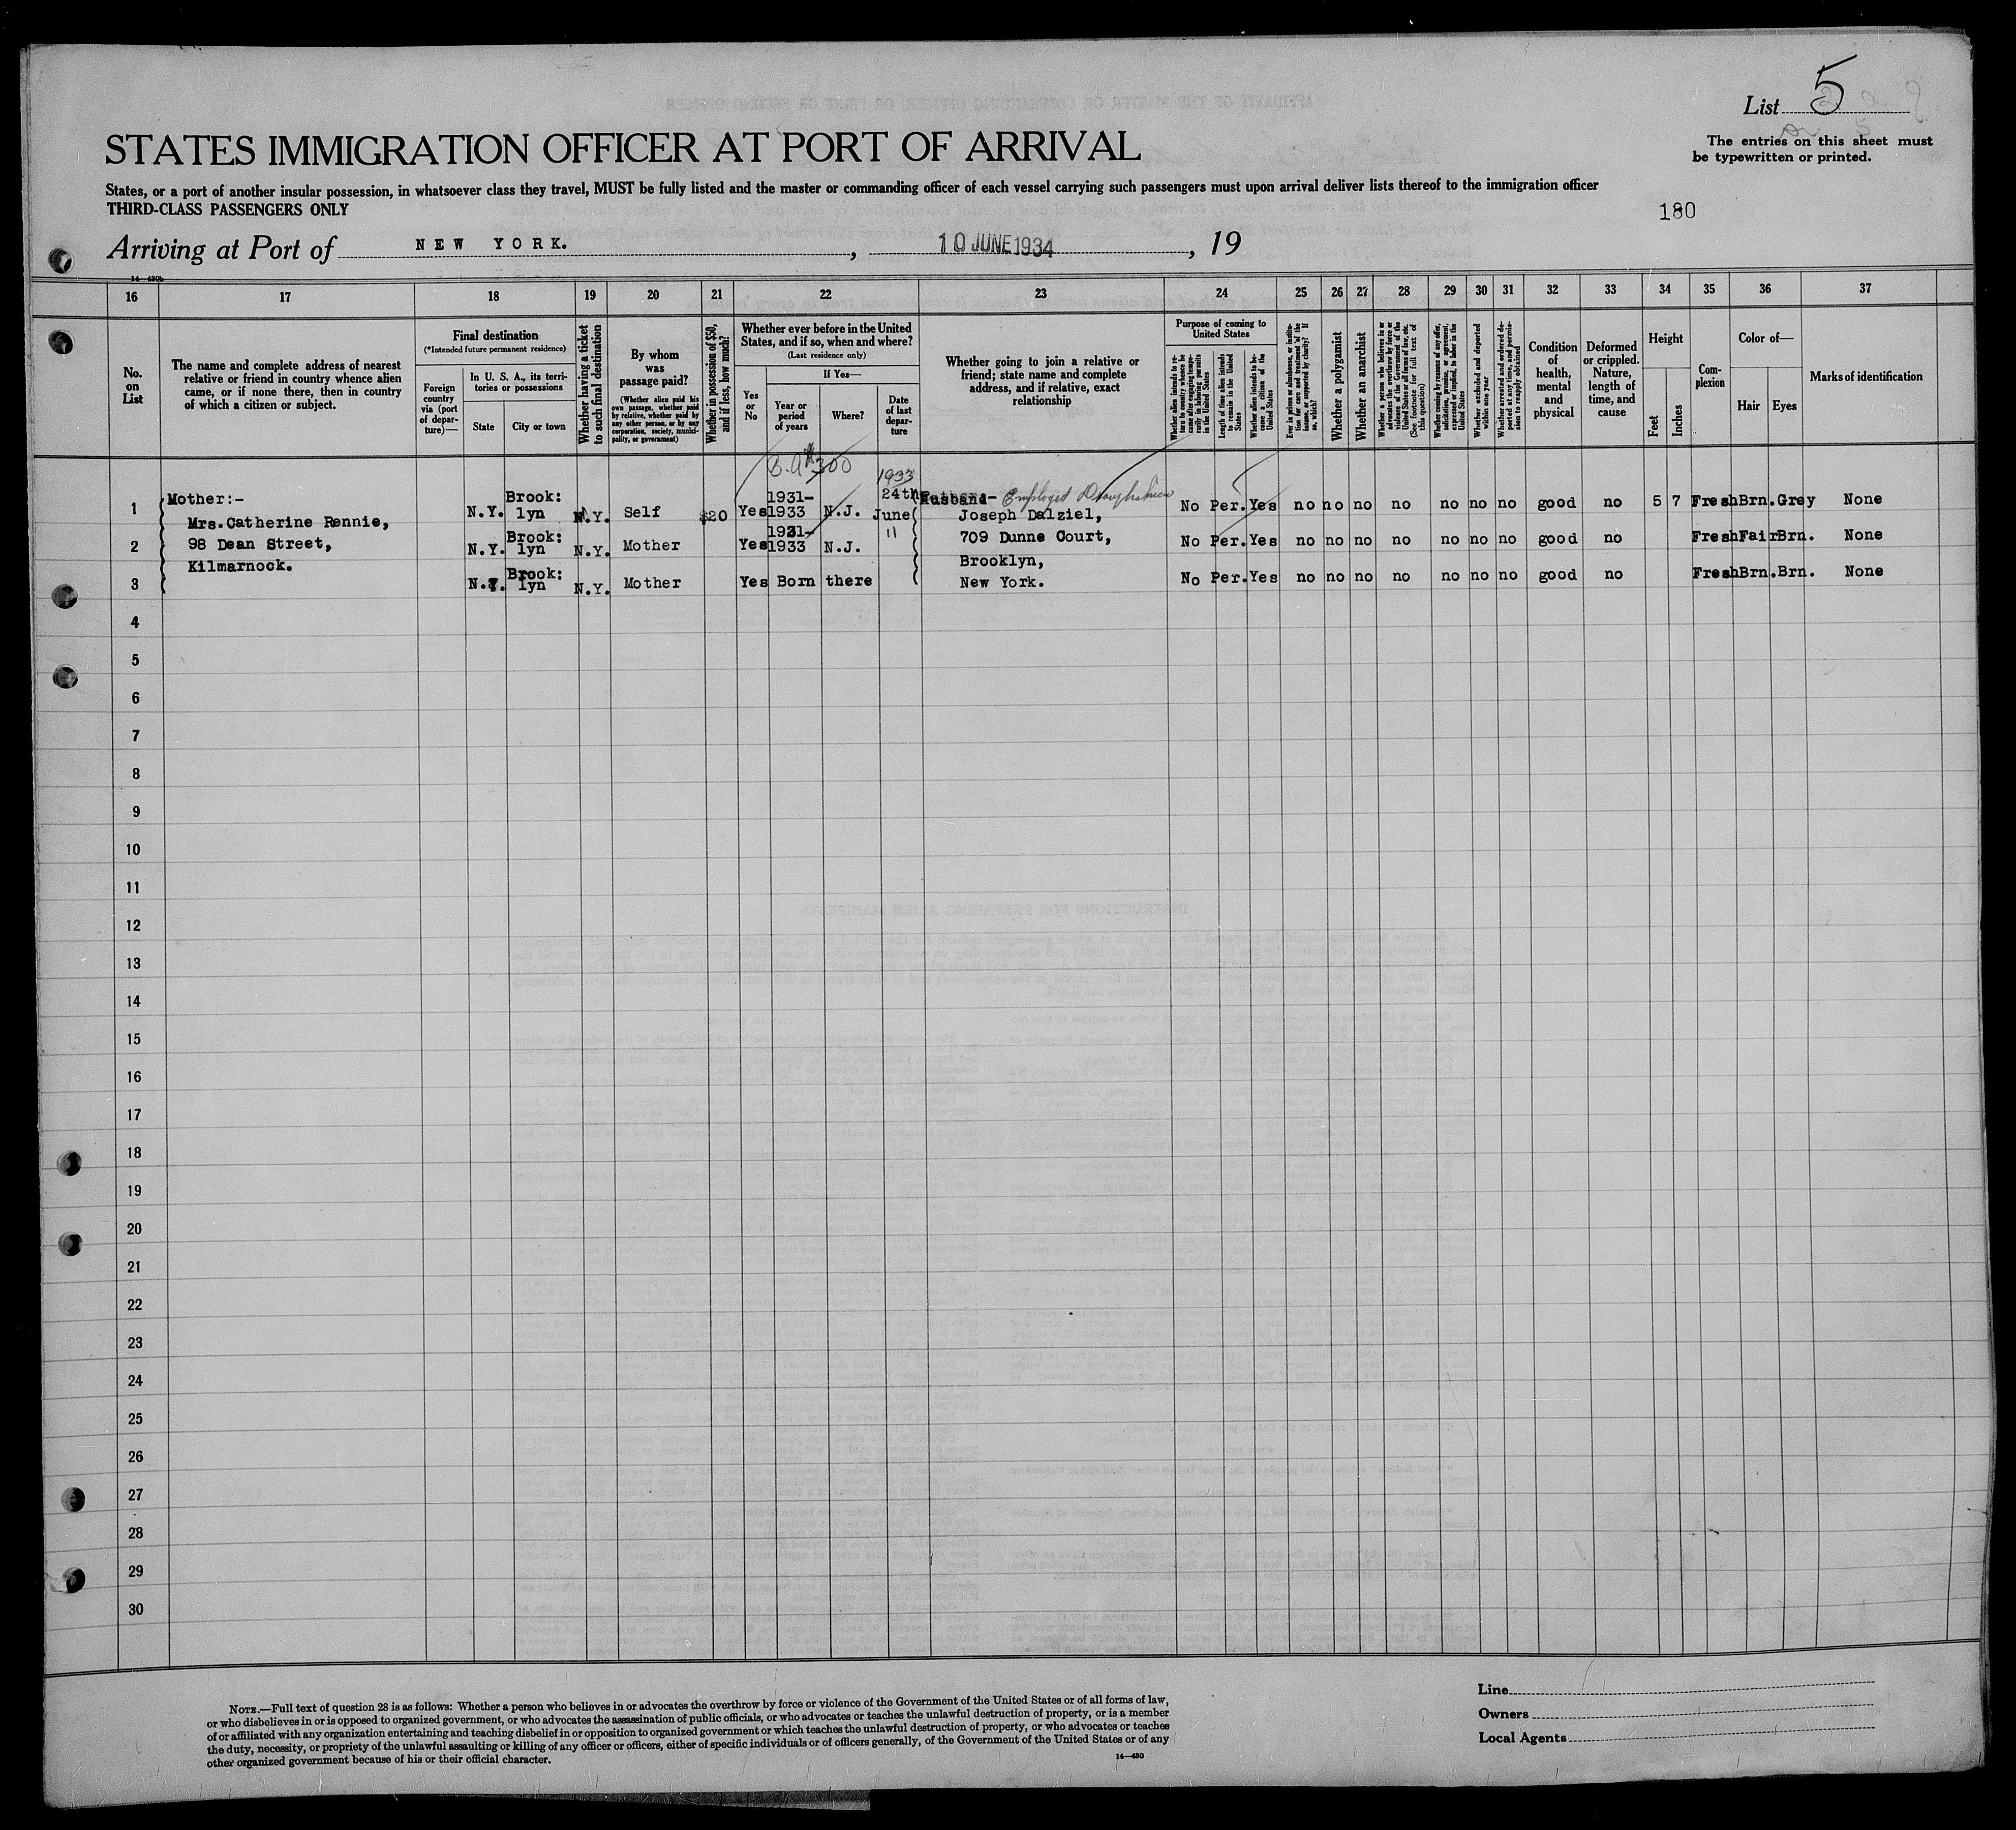 List 5
The entries on this sheet must
be typewritten or printed.
STATES IMMIGRATION OFFICER AT PORT OF ARRIVAL
States, or a port of another insular possession, in whatsoever class they travel, MUST be fully listed and the master or commanding officer of each vessel carrying such passengers must upon arrival deliver lists thereof to the immigration officer
THIRD-CLASS PASSENGERS ONLY
180
Arriving at Port of NEW YORK. , 10 JUNE 1934 , 19
14—430b
16 17 18 19 20 21 22 23 24 25 26 27 28 29 30 31 32 33 34 35 36 37
No.
on
List
The name and complete address of nearest
relative or friend in country whence alien
came, or if none there, then in country
of which a citizen or subject.
Final destination
(*Intended future permanent residence)
Foreign
country
via (port
of depar-
ture)—
In U. S. A., its terri-
tories or possessions
State
City or town
Whether having a ticket
to such final destination
By whom
was
passage paid?
(Whether alien paid his
own passage, whether paid
by relative, whether paid by
any other person, or by any
corporation, society, munici-
pality, or government)
Whether in possession of $50,
and if less, how much?
Whether ever before in the United
States, and if so, when and where?
(Last residence only)
Yes
or
No
If Yes—
Year or
period
of years
Where?
Date
of last
depar-
ture
Whether going to join a relative or
friend; state name and complete
address, and if relative, exact
relationship
Purpose of coming to
United States
Whether alien intends to re-
turn to country whence he
came after engaging tempo-
rarily in laboring pursuits
in the United States
Length of time alien intends
to remain in the United
States
Whether alien intends to be-
come a citizen of the
United States
Ever in prison or almshouse, or institu-
tion for care and treatment of the
insane, or supported by charity? If
so, which?
Whether a polygamist
Whether an anarchist
Whether a person who believes in or
advocates the overthrow by force or
violence of the Government of the
United States or all forms of law, etc.
(See footnote for full text of
this question)
Whether coming by reasons of any offer,
solicitation, promise, or agreement,
expressed or implied, to labor in the
United States
Whether excluded and deported
within one year
Whether arrested and ordered de-
ported at any time, and permis-
sion to reapply obtained
Condition
of
health,
mental
and
physical
Deformed
or crippled.
Nature,
length of
time, and
cause
Height
Feet
Inches
Com-
plexion
Color of—
Hair
Eyes
Marks of identification
300
1933
1 Mother:- N.Y. Brook: lyn N.Y. Self $20 Yes 1931- 1933 N.J. 24th June Husband- Employed No Per. Yes no no no no no no no good no 5 7 Fresh Brn. Grey None
Mrs.Catherine Rennie, Joseph Dalziel,
2 98 Dean Street, N.Y. Brook: lyn N.Y. Mother Yes 1931- 1933 N.J. 11 709 Dunne Court, No Per. Yes no no no no no no no good no Fresh Fair Brn. None
Kilmarnock. Brooklyn,
3 N.Y. Brook: lyn N.Y. Mother Yes Born there New York. No Per. Yes no no no no no no no good no Fresh Brn. Brn. None
4
5
6
7
8
9
10
11
12
13
14
15
16
17
18
19
20
21
22
23
24
25
26
27
28
29
30
NOTE.—Full text of question 28 is as follows: Whether a person who believes in or advocates the overthrow by force or violence of the Government of the United States or of all forms of law,
or who disbelieves in or is opposed to organized government, or who advocates the assassination of public officials, or who advocates or teaches the unlawful destruction of property, or is a member
of or affiliated with any organization entertaining and teaching disbelief in or opposition to organized government or which teaches the unlawful destruction of property, or who advocates or teaches
the duty, necessity, or propriety of the unlawful assaulting or killing of any officer or officers, either of specific individuals or of officers generally, of the Government of the United States or of any
other organized government because of his or their official character.
14—430
Line
Owners
Local Agents